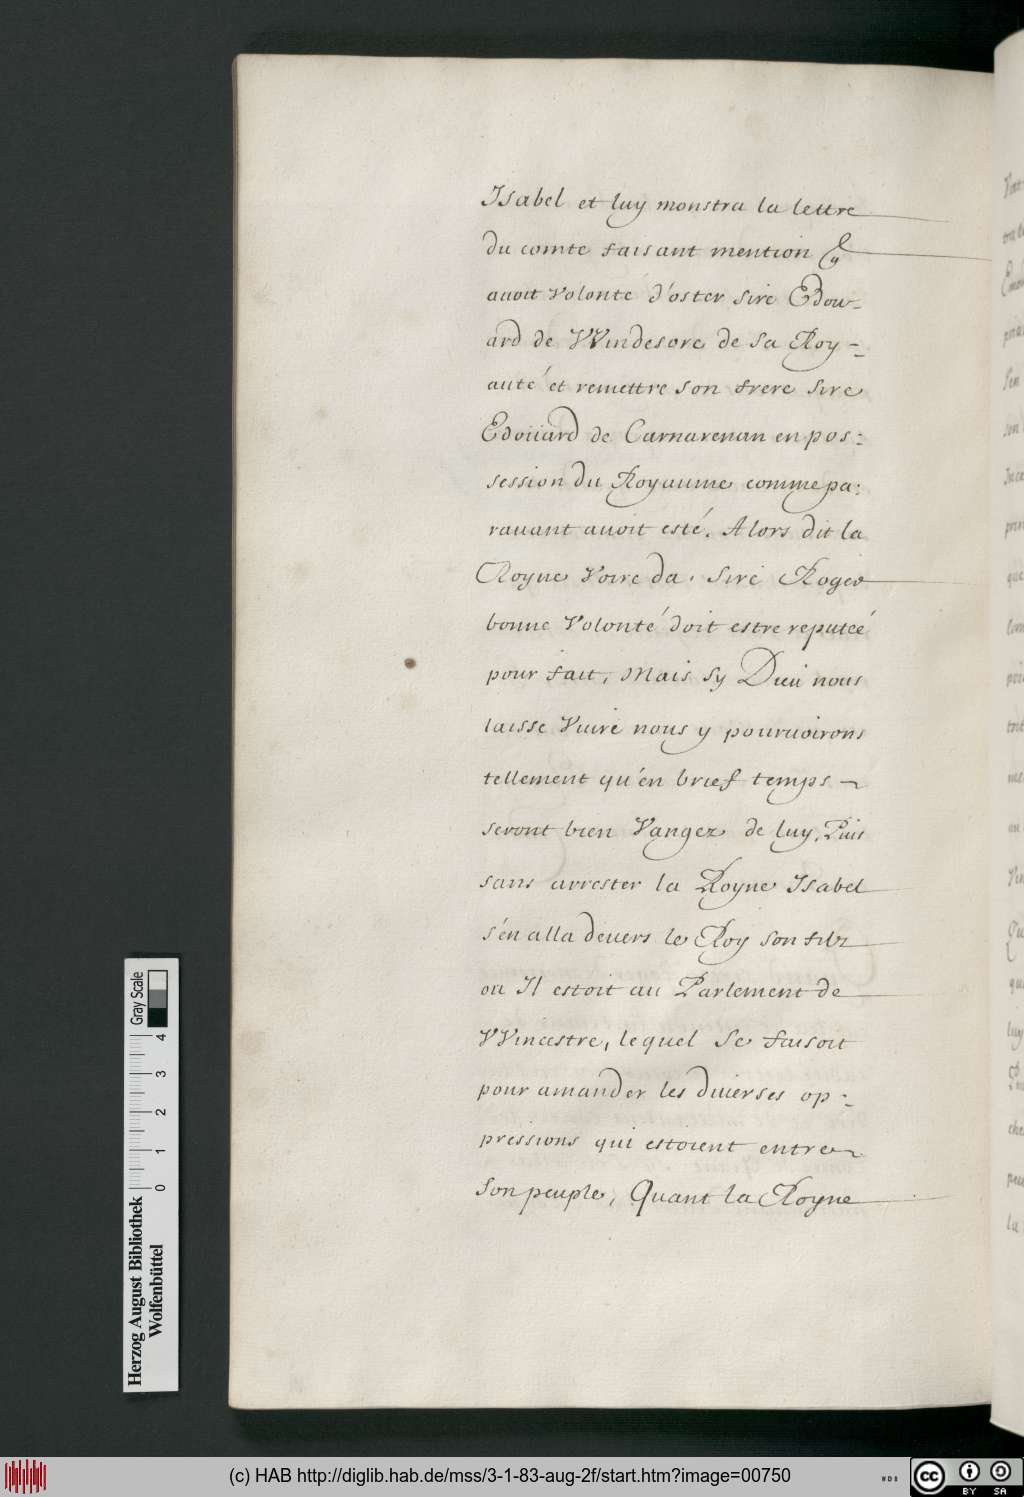 Isabel et luy monstra la lettre
du comte faisant mention
auoit Volonté d'oster sire Edou-
ard de VVindesore de sa Roy-
auté et remettre son frere sire
Edoüard de Carnarenan en pos-
session du Royaume comme pa-
rauant auoit esté. Alors dit la
Royne Voire da. Sire Roger
bonne Volonté doit estre reputeé
pour fait, Mais sy Dieu nous
laisse Viure nous y pouruoirons
tellement qu'en brief temps
seront bien Vangez de luy, Puis
sans arrester la Royne Isabel
s'en alla deuers le Roy son filz
ou Il estoit au Parlement de
VVincestre, lequel se faisoit
pour amander les diuerses op-
pressions qui estoient entre
son peuple, Quant la Royne
Herzog August Bibliothek
Wolfenbüttel
0 1 2 3 4
Gray Scale
(c) HAB http://diglib.hab.de/mss/3-1-83-aug-2f/start.htm?image=00750
WDB
cc BY SA